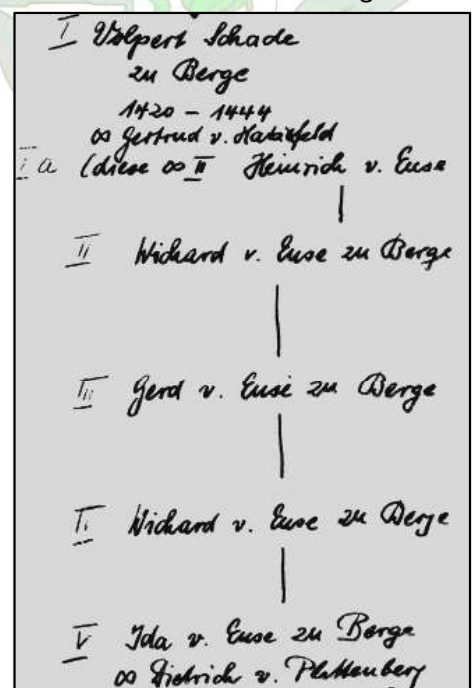 I Volpert Schade
zu Berge
1420 – 1444
∞ Gertrud v. Hatzfeld
Ia (diese ∞ II Heinrich v. Ense
II Wichard v. Ense zu Berge
III Gerd v. Ense zu Berge
Wichard v. Ense zu Berge
V Ida v. Ense zu Berge
∞ Dietrich v. Plettenberg